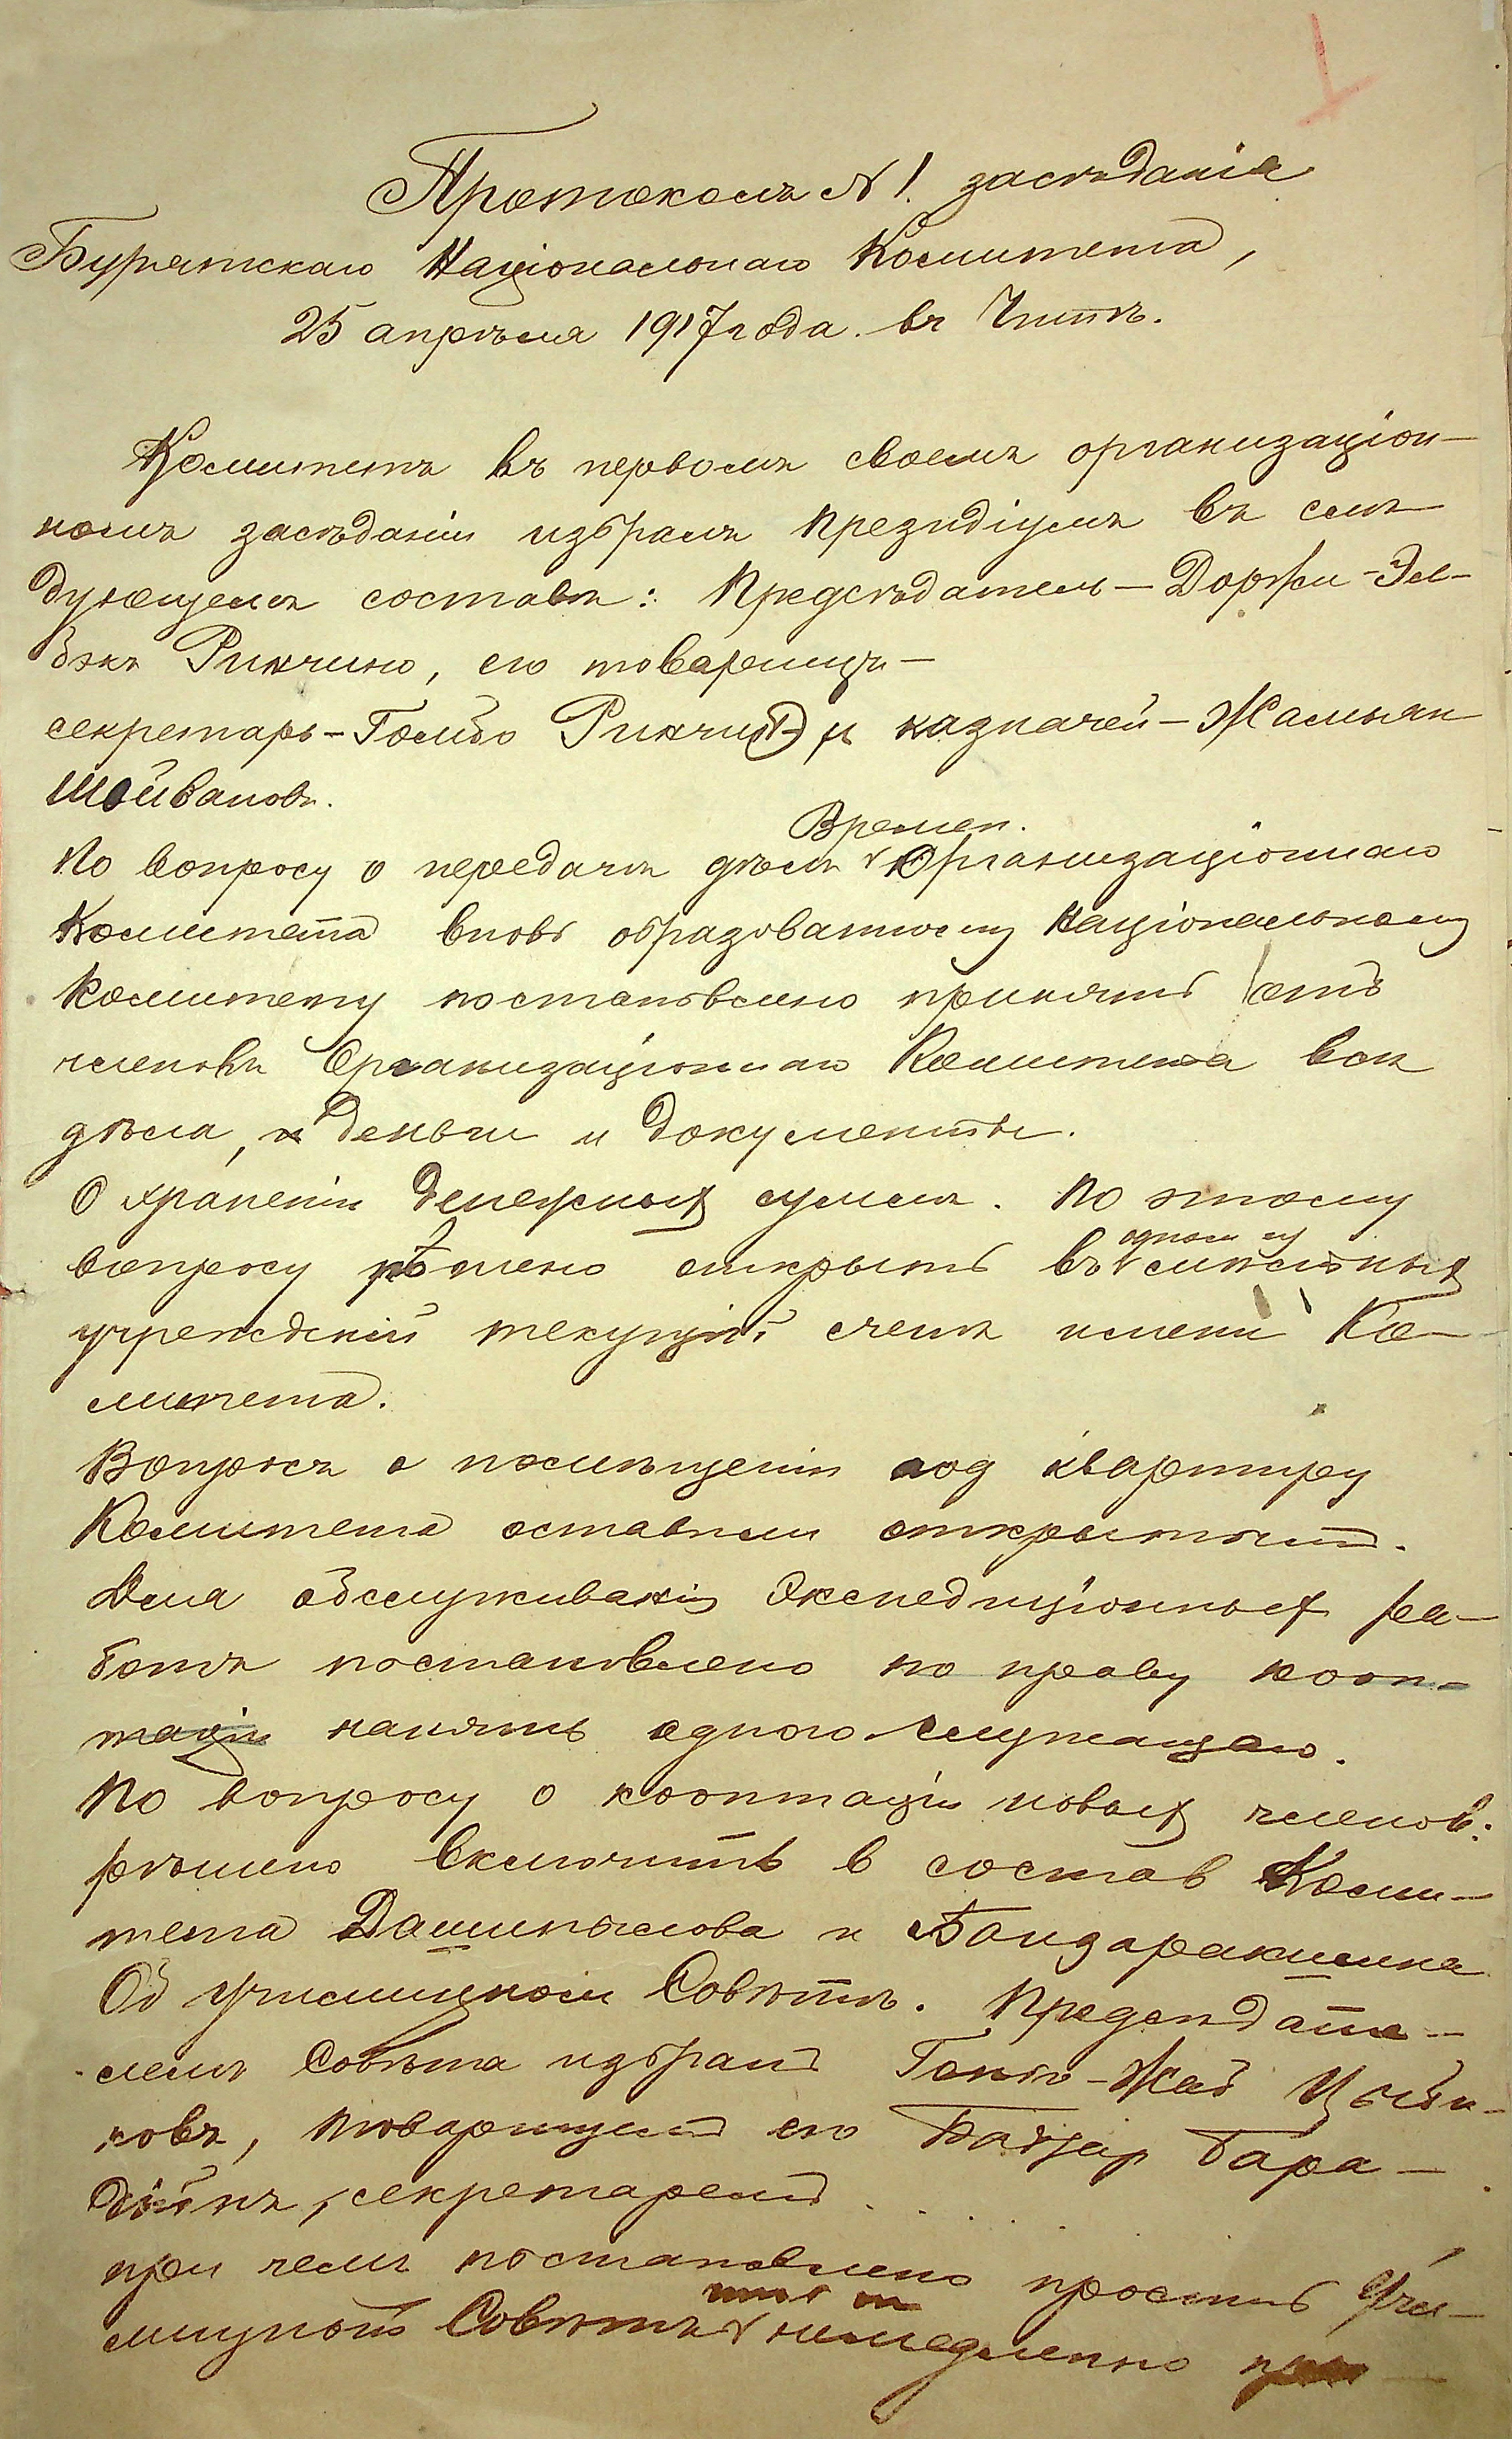 Протоколъ № 1. засѣданія
Бурятскаго Національнаго Комитета,
25 апрѣля 1917 года. въ Читѣ.
Комитетъ въ первомъ своемъ организаціон-
номъ засѣданіи избралъ президіумъ въ слѣ-
дующемъ составѣ: Предсѣдатель – Доржи-Эл-
бэкъ Ринчино, его товарищъ –
секретарь – Гомбо Ринчинъ и казначей – Жамьян
Шойвановъ.
Времен.
По вопросу о передачѣ дѣлъ Организаціоннаго
Комитета вновь образованному Національному
Комитету постановлено принять отъ
членовъ Организаціоннаго Комитета всѣ
дѣла, деньги и документы.
О храненіи денежныхъ суммъ. По этому
одном изъ
вопросу рѣшено открыть въ
учрежденій текущій счетъ имени Ко-
митета.
Вопросъ о помѣщеніи под квартиру
Комитета оставленъ открытымъ.
Для обслуживанія Экспедиціонныхъ ра-
ботъ постановлено по праву кооп-
таціи нанять одного служащаго.
По вопросу о кооптаціи новыхъ членов:
рѣшено включить в состав Коми-
тета Дашинылова и Бандаракшина
Об Училищном Совѣтѣ. Предсѣдате-
лемъ Совѣта избранъ Гомбо-Жаб Цыби-
ковъ, товарищемъ его Бадзар Бара-
дійнъ, секретаремъ . . . . .
при чемъ постановлено просить Учи-
лищный Совѣтъ немедленно